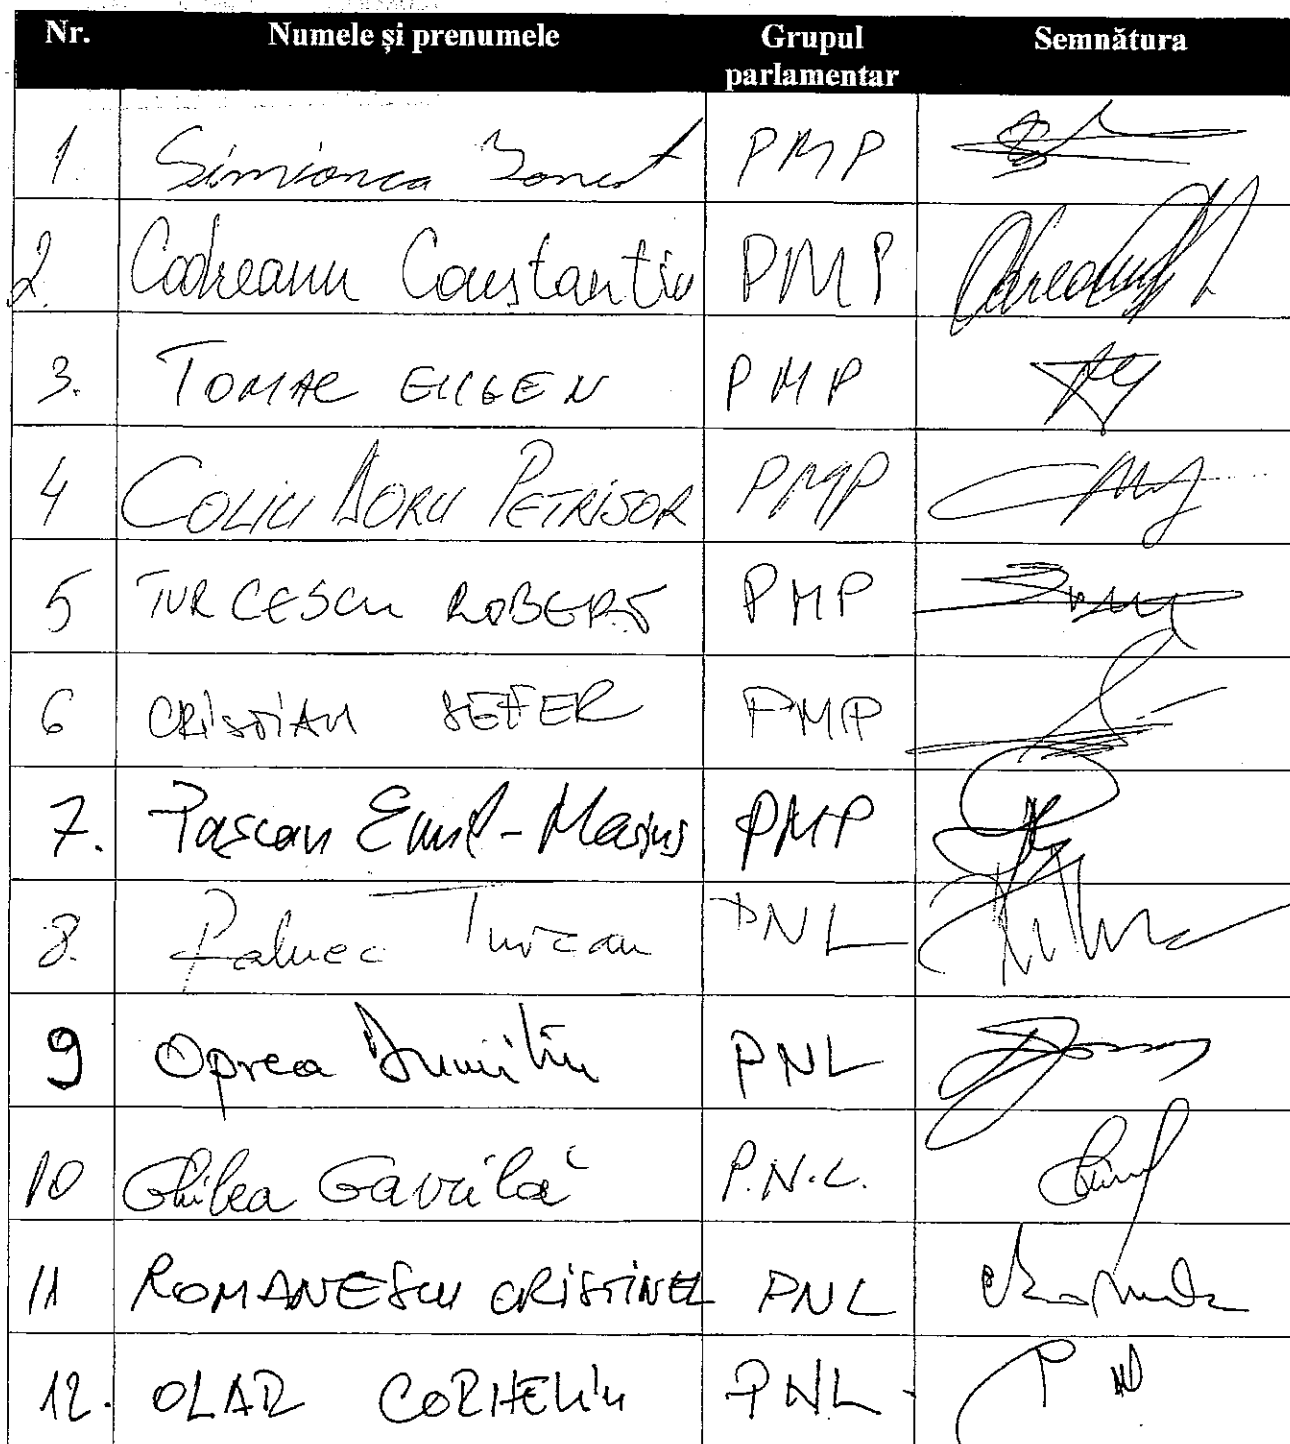 Nr. Numele și prenumele Grupul parlamentar Semnătura
1. Simionca Ionuț PMP
2. Codreanu Constantin PMP
3. TOMAC EUGEN PMP
4 COLIU DORU PETRISOR PMP
5 TURCESCU ROBERT PMP
6 CRISTIAN SEFER PMP
7. Pascan Emil-Marius PMP
8. Raluca Turcan PNL
9 Oprea Dumitru PNL
10 Ghilea Gavrilă P.N.L.
11 ROMANESCU CRISTINEL PNL
12. OLAR CORNELIU PNL